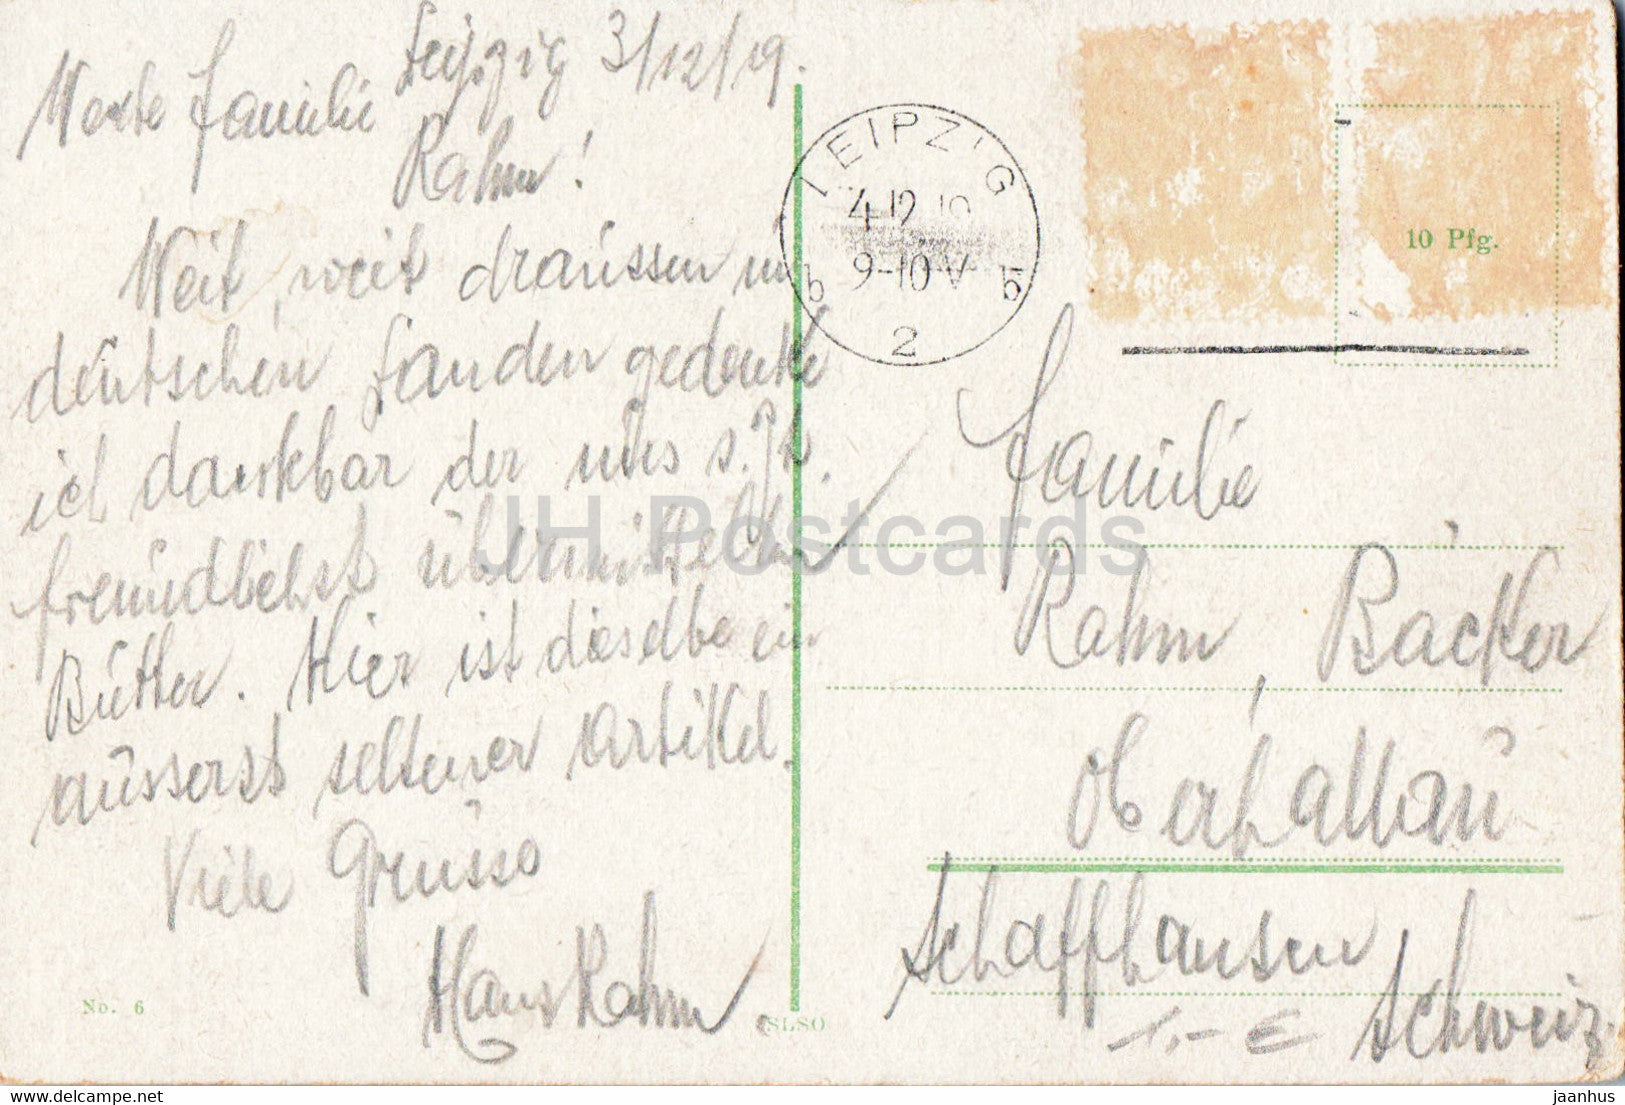 Leipzig 3/12/19.
Werte Familie
Rahm!
Weit, weit draussen in
deutschen Landen gedenke
ich dankbar der uns s. Zt.
freundlichst übermittelten
Butter. Hier ist dieselbe ein
äusserst seltener Artikel.
Viele Grüsse
Hans Rahm
No. 6
SLSO
LEIPZIG
4.12.19
9-10 V
b b
2
10 Pfg.
Familie
Rahm, Bäcker
Oberhallau
Schaffhausen
Schweiz.
1.- E
JH Postcards
delcampe.net
jaanhus